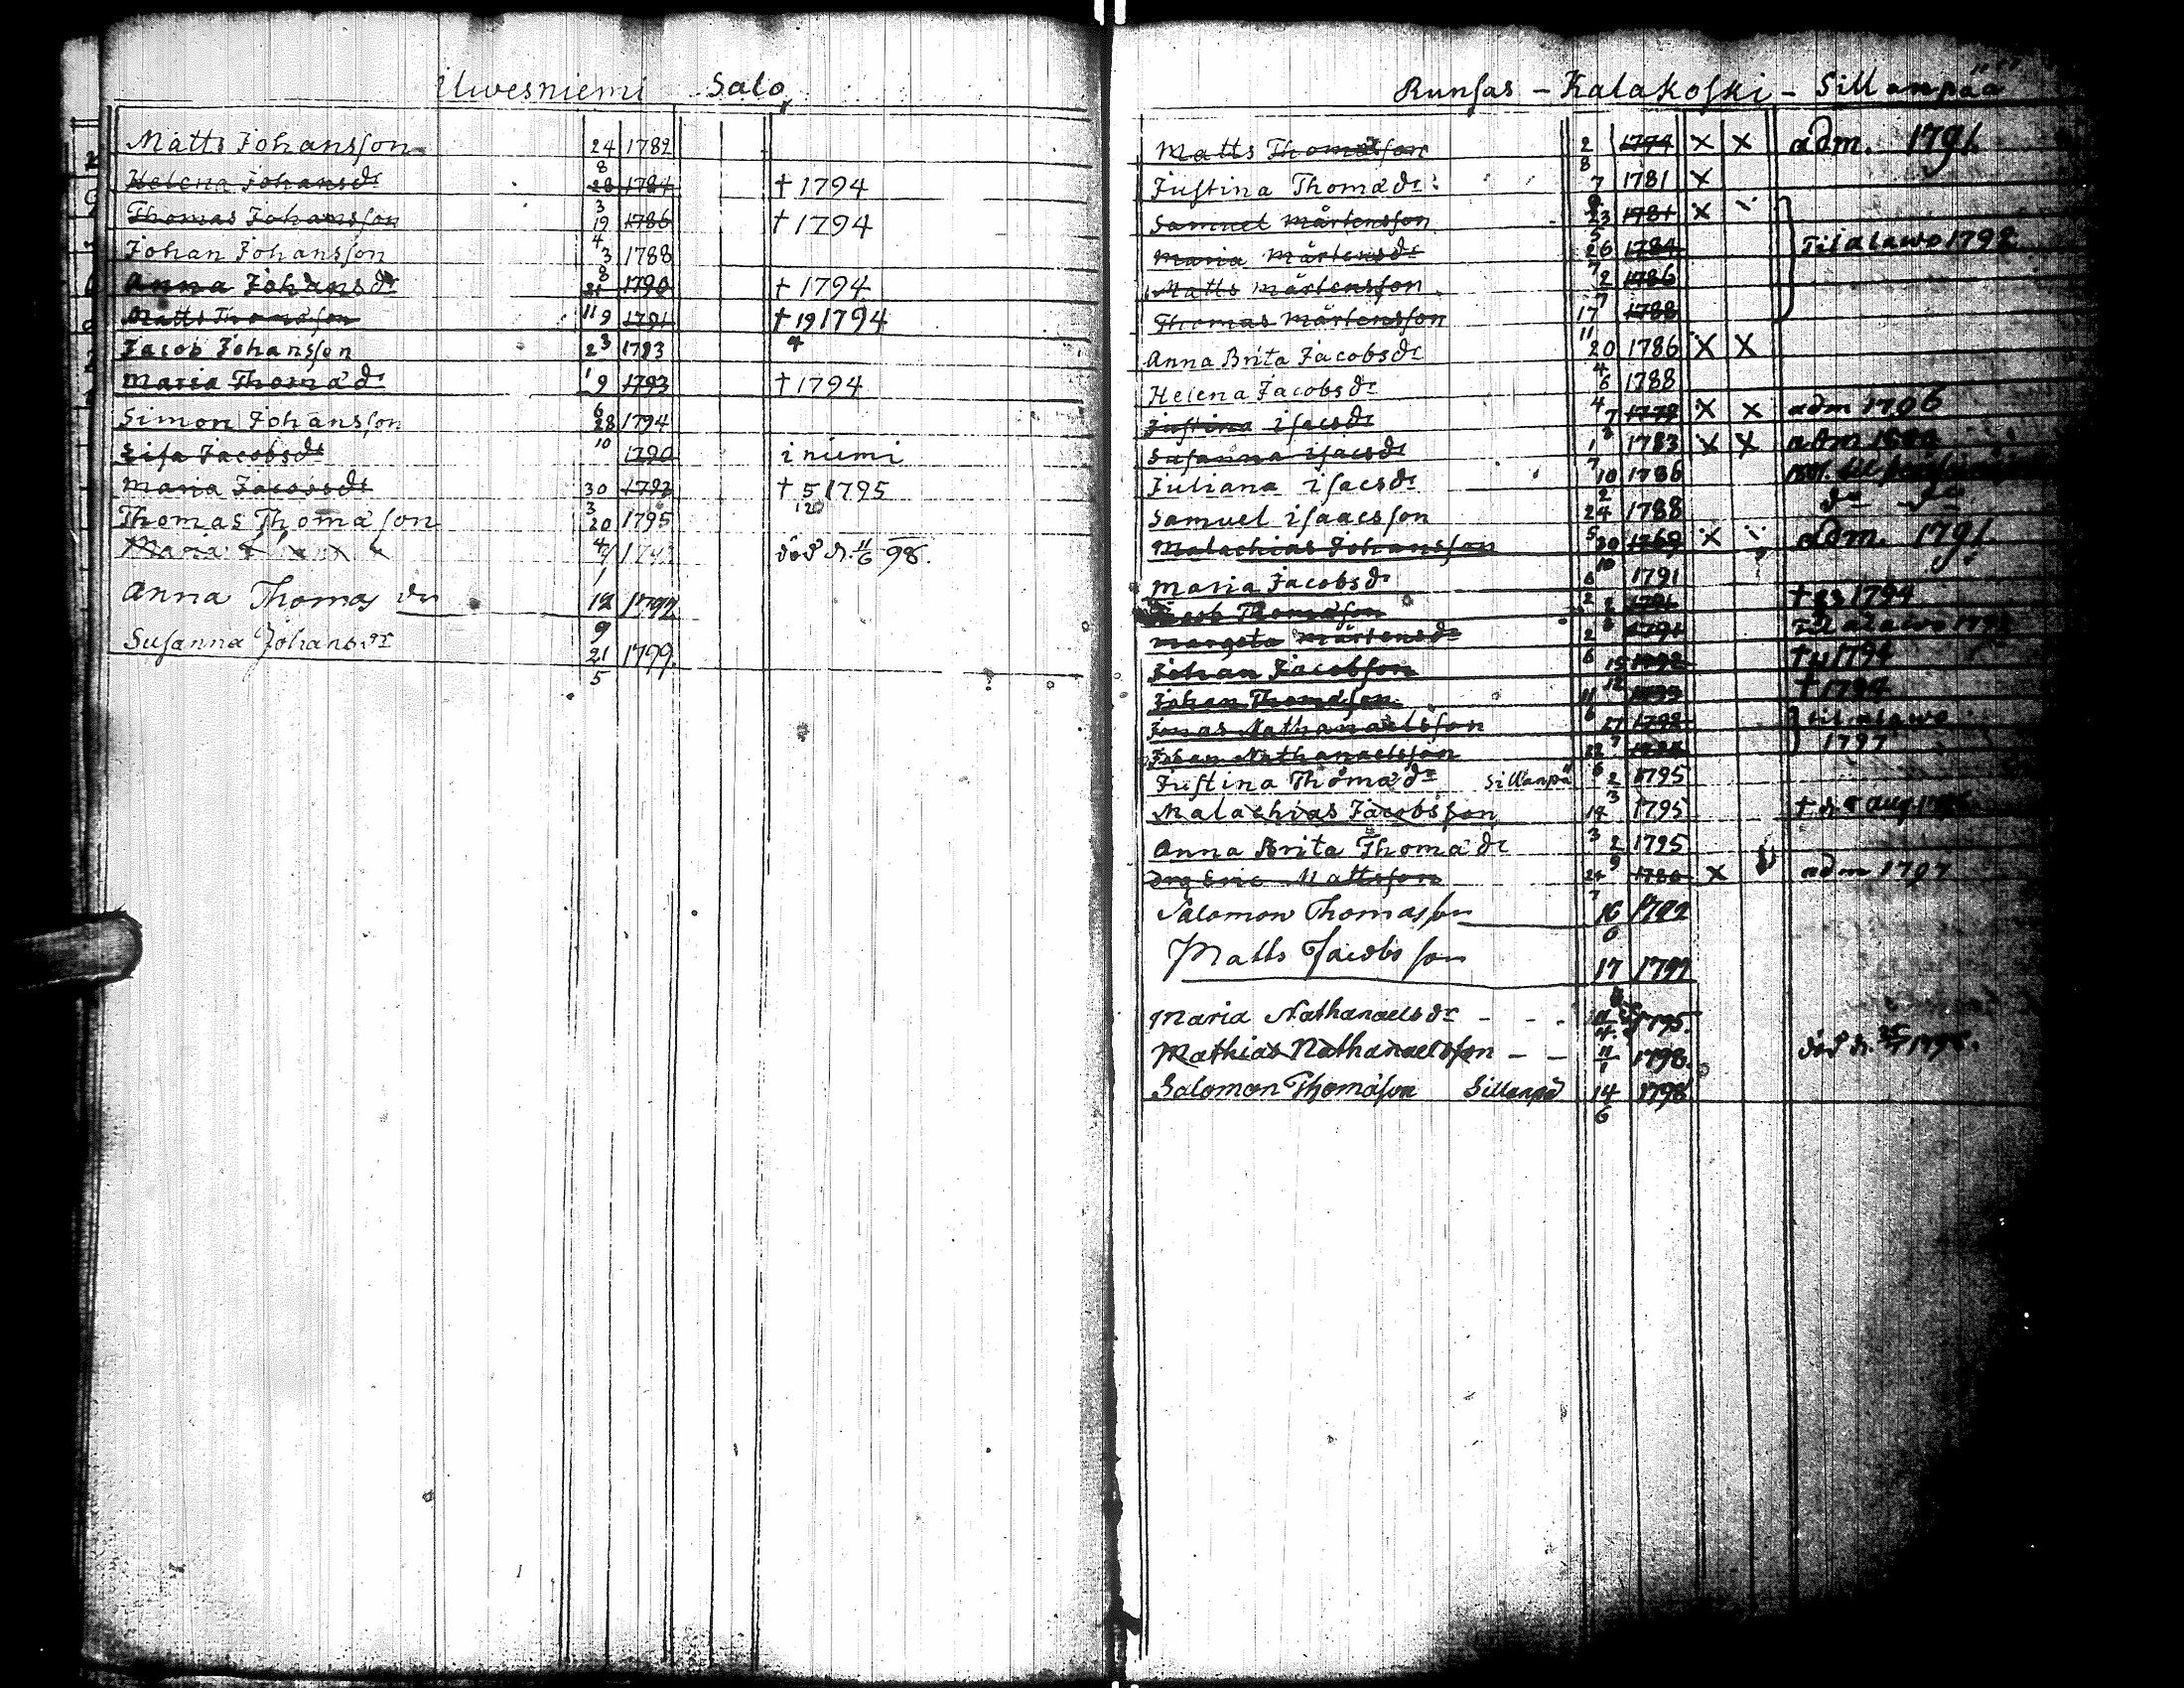 Uwesniemi Salo
Matts Johansson 24 1782
8
Helena Johansdr 28 1784 † 1794
3
Thomas Johansson 19 1786 † 1794
4
Johan Johansson 3 1788
8
Anna Johansdr 21 1790 † 1794
11
Matts Thomasson 9 1791 † 19 1794
3 4
Jacob Johansson 2 1793
1
Maria Thomadr 9 1793 † 1794
6
Simon Johansson 28 1794
10
Lisa Jacobsdr 1790 i niemi
Maria Jacobsdr 30 1793 † 5 1795
3 12
Thomas Thomason 20 1795
4
Maria död d. 11/6 98.
1
Anna Thomas dr 12 1797
9
Susanna Johansdr 21 1799.
5
Runsas – Kalakoski – Sillanpää
Matts Thomasson 2 1774 × × adm. 1791.
8
Justina Thomadr: 7 1781 ×
Samuel Mårtensson 23 1781 ×
5
Maria Mårtensdr 26 1784 Til alawo 1792
7
Matts Mårtensson 2 1786
7
Thomas Mårtensson 17 1788
11
Anna Brita Jacobsdr 20 1786 × ×
4
Helena Jacobsdr 6 1788
4
Justina isacsdr 7 1778 × × adm 1796
Susanna isacsdr 1 1783 × × adm
7
Juliana isacsdr 10 1786
2
Samuel isaacsson 24 1788 do do
5
Malachias Johansson 30 1769 × adm. 1791.
10
Maria Jacobsdr 6 1791
2
Jacob Thomasson 2 1791 † 1794
Margeta Mårtensdr 2 1791 Til alawo
6
Johan Jacobson 15 1792 † 11 1794
12
Johan Thomason 11 † 1794
6
Jonas Nathanaelsson 27 1792 til alawo
7
Johan Nathanaelsson 22 1797
6
Justina Thomadr Sillanpä 2 1795
3
Malachias Jacobsson 14 1795
3
Anna Brita Thomadr 2 1795
9
Drg Eric Mattsson 24 1780 × adm 1797
7
Salomon Thomasson 16
6
Matts Jacobsson 17 1797
Maria Nathanaelsdr – – . 1795.
Mathias Nathanaelsson – – 11/1 1798.
Salomon Thomason Sillanpä 14 1798
6